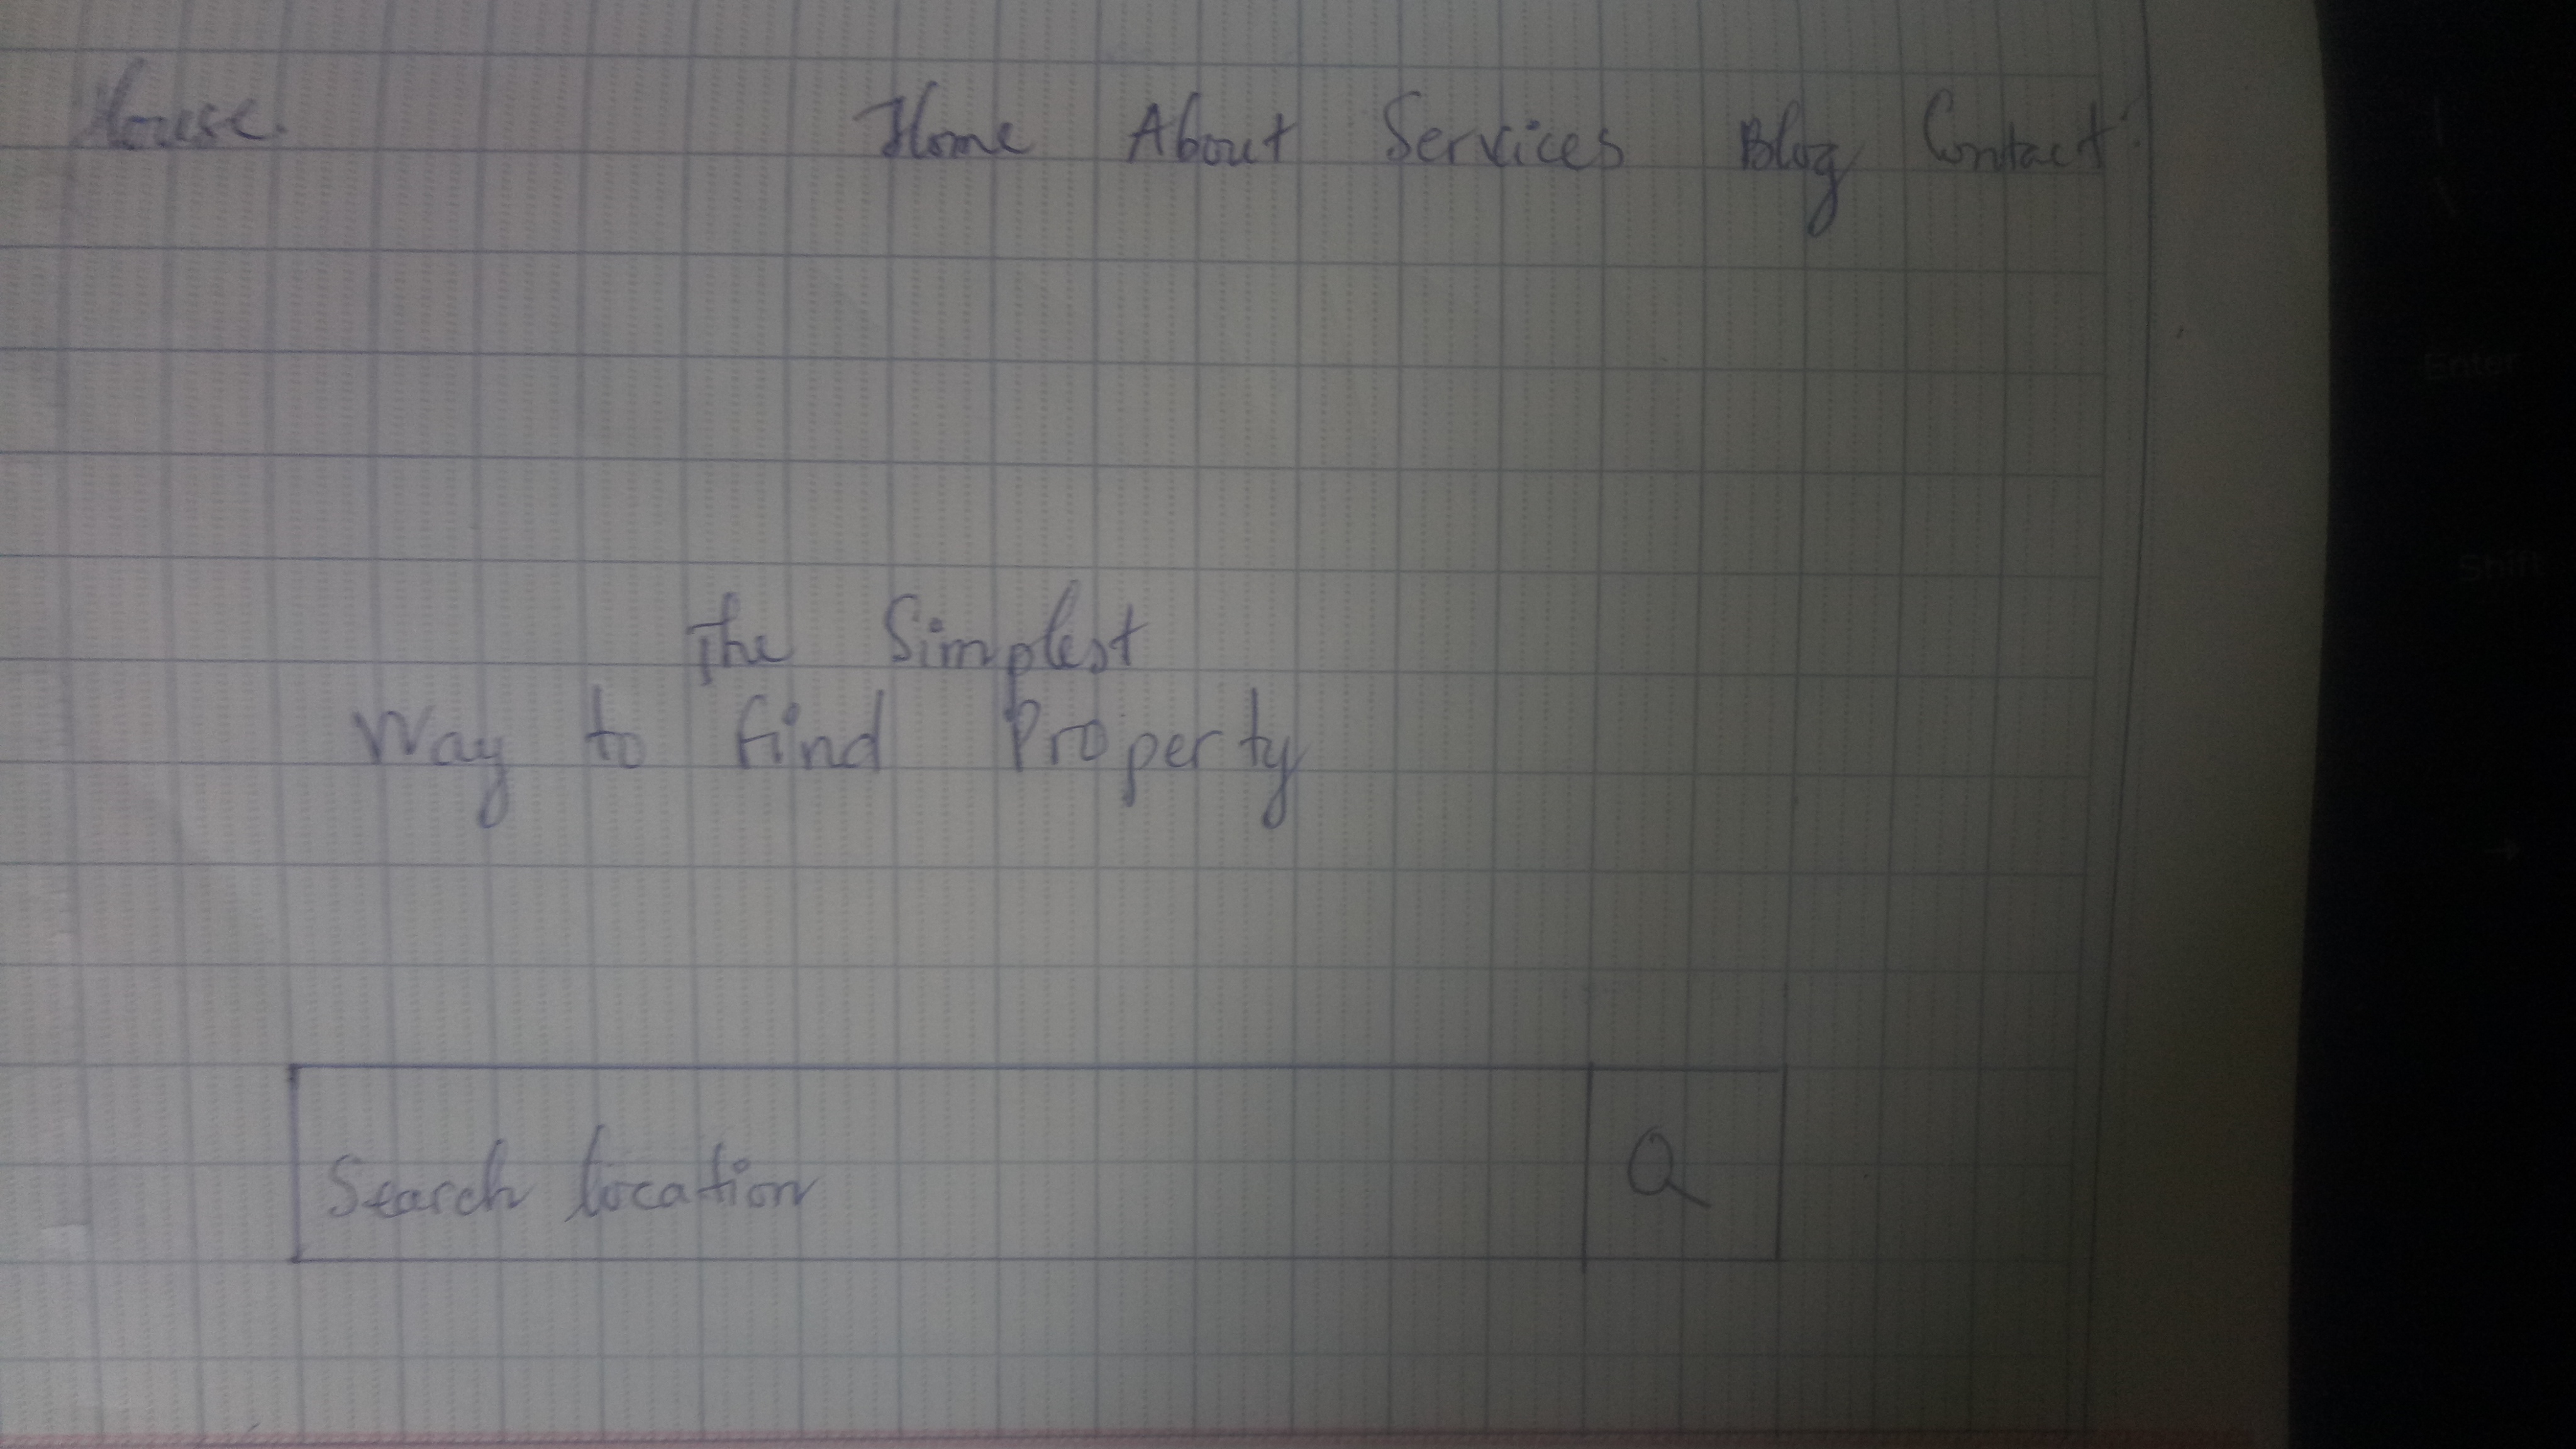 House.
Home About Services Blog Contact
The Simplest
Way to find Property
Search location
Enter
Shift